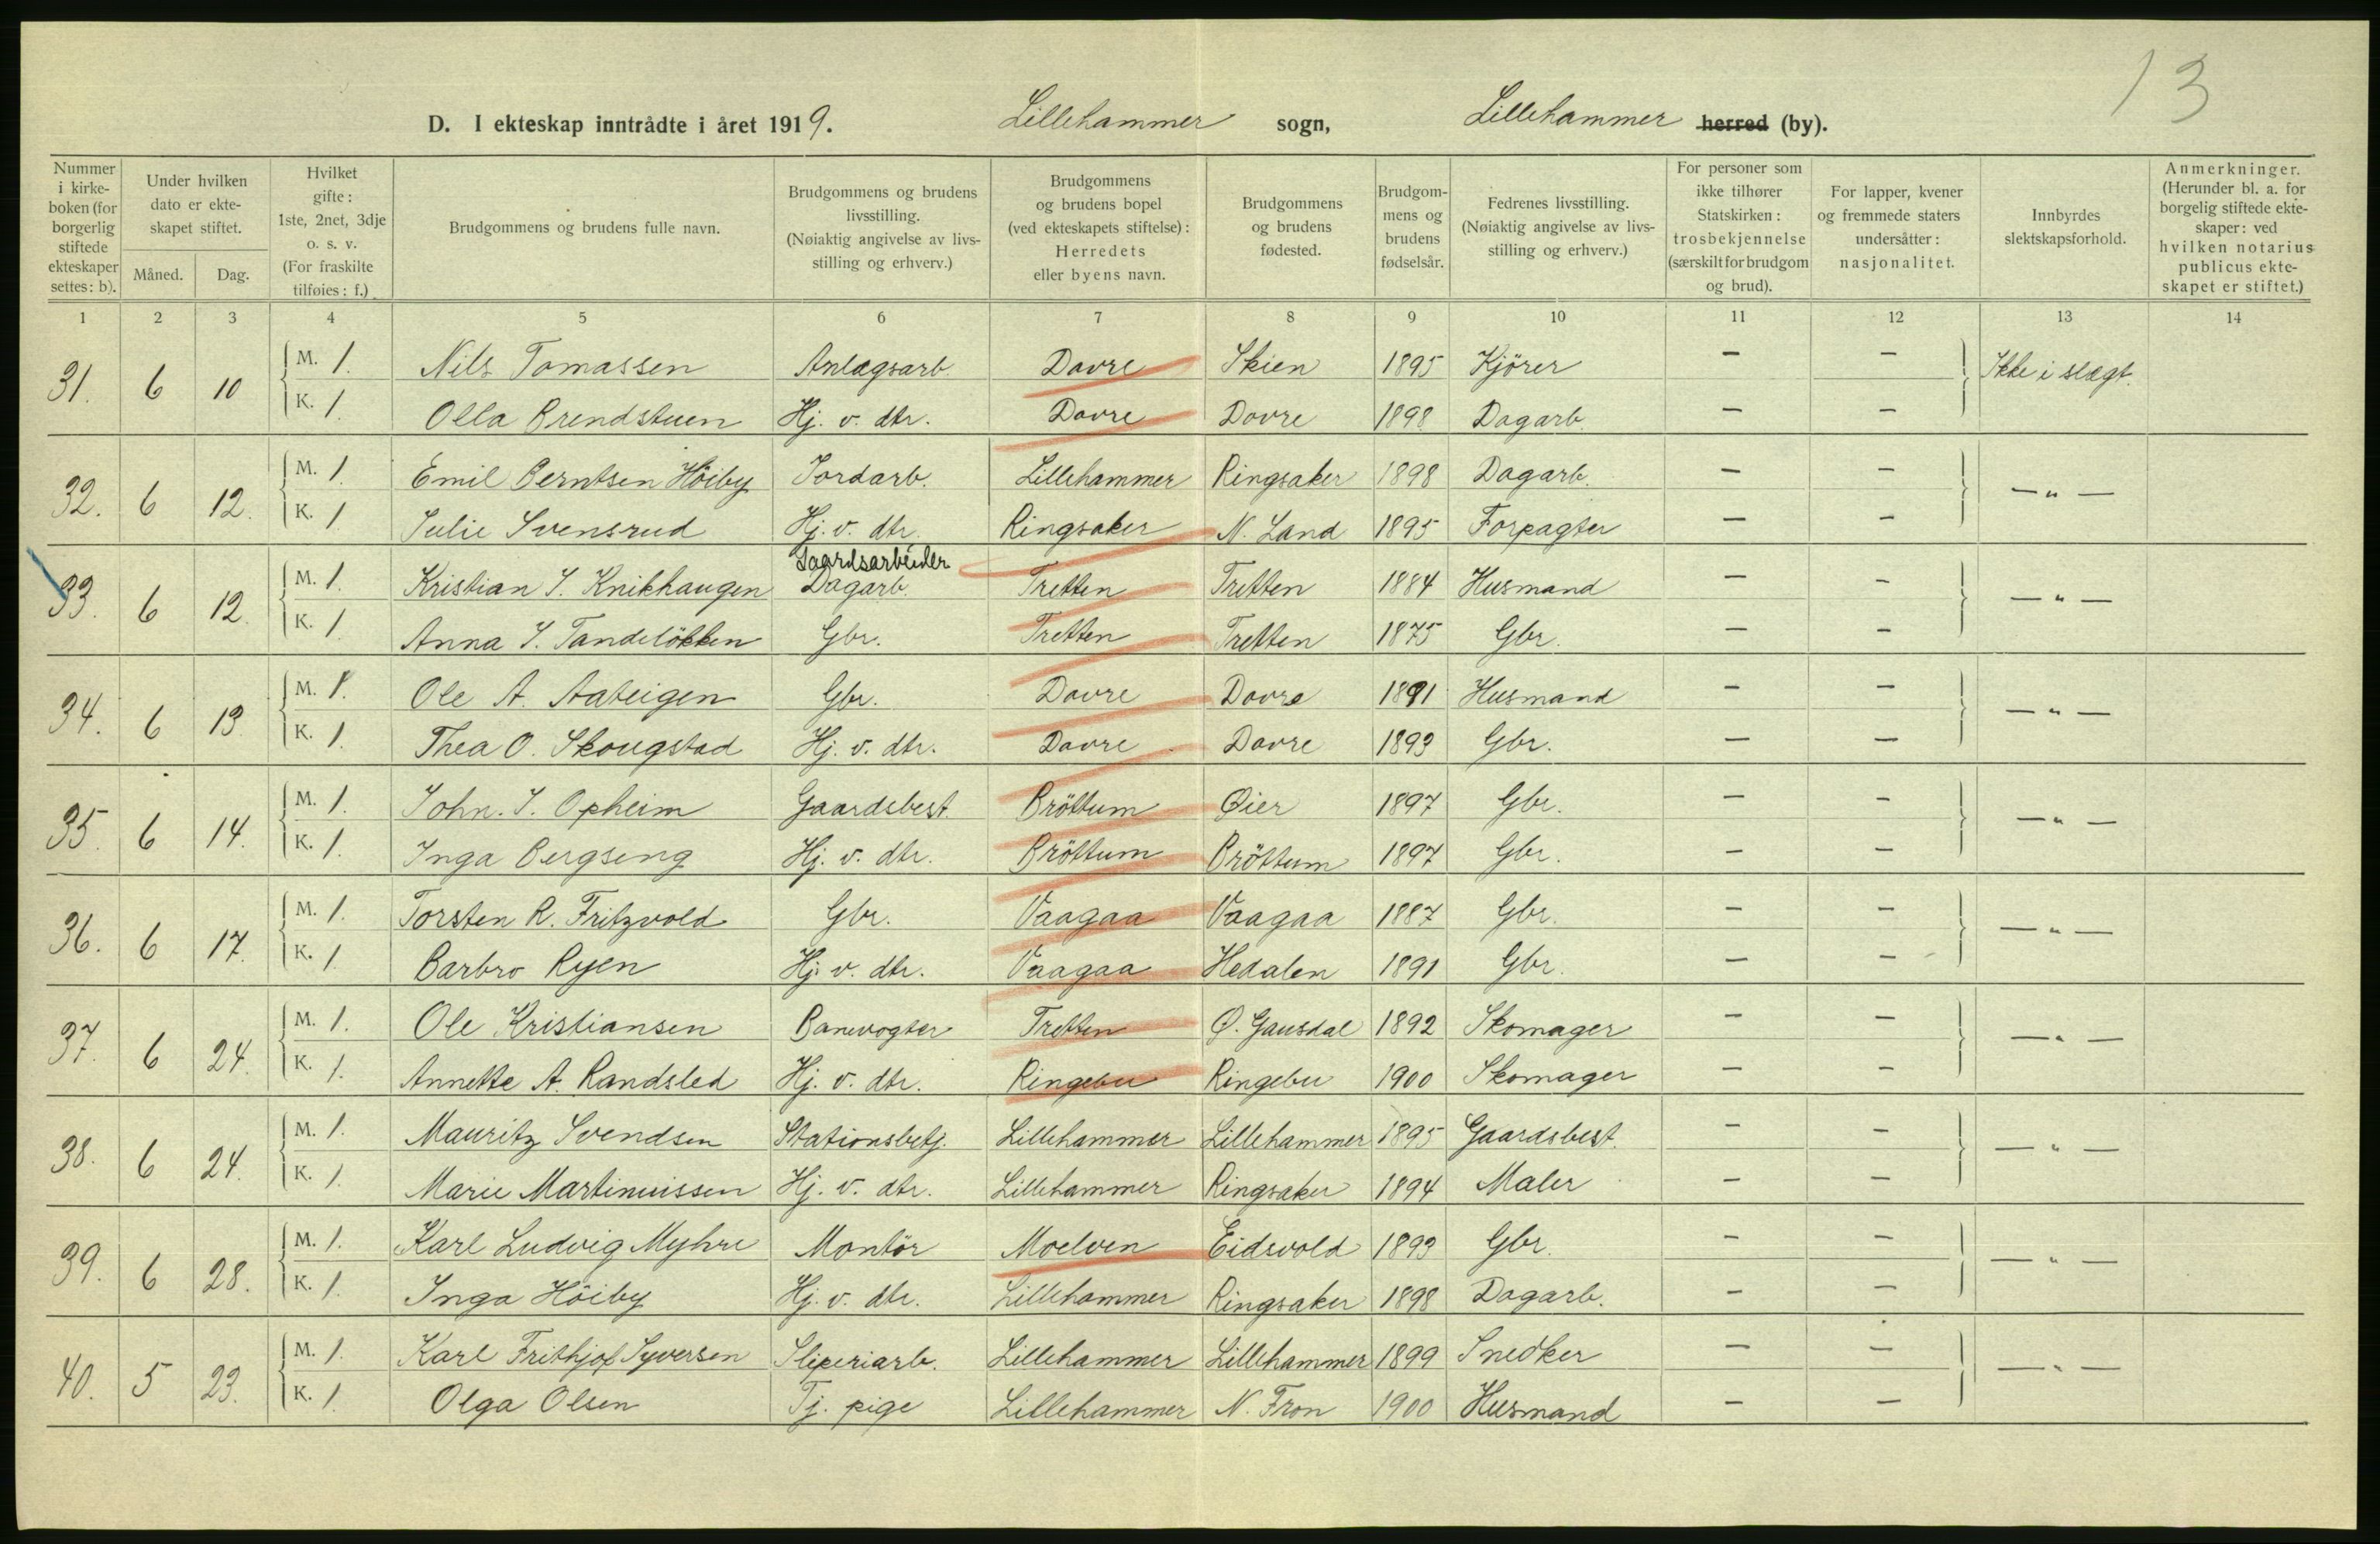 13
D. I ekteskap inntrådte i året 1919. Lillehammer sogn, Lillehammer herred (by).
Nummer i kirkeboken (for borgerlig stiftede ekteskaper settes: b).
Under hvilken dato er ekteskapet stiftet.
Måned. Dag.
Hvilket gifte: 1ste, 2net, 3dje o. s. v. (For fraskilte tilføies: f.)
Brudgommens og brudens fulle navn.
Brudgommens og brudens livsstilling. (Nøiaktig angivelse av livsstilling og erhverv.)
Brudgommens og brudens bopel (ved ekteskapets stiftelse): Herredets eller byens navn.
Brudgommens og brudens fødested.
Brudgommens og brudens fødselsår.
Fedrenes livsstilling. (Nøiaktig angivelse av livsstilling og erhverv.)
For personer som ikke tilhører Statskirken: trosbekjennelse (særskilt for brudgom og brud).
For lapper, kvener og fremmede staters undersåtter: nasjonalitet.
Innbyrdes slektskapsforhold.
Anmerkninger. (Herunder bl. a. for borgelig stiftede ekteskaper: ved hvilken notarius publicus ekteskapet er stiftet.)
1 2 3 4 5 6 7 8 9 10 11 12 13 14
31. 6 10 M. 1. Nils Tomassen Anlægsarb. Dovre Skien 1895 Kjörer — — Ikke i slægt.
K. 1. Olla Brendstuen Hj. v. dtr. Dovre Dovre 1898 Dagarb. — —
32. 6 12. M. 1. Emil Berntsen Höiby Jordarb. Lillehammer Ringsaker 1898 Dagarb. — — — " —
K. 1. Julie Svensrud Hj. v. dtr. Ringsaker N. Land 1895 Forpagter — —
Gaardsarbeider
33. 6 12. M. 1. Kristian J. Knikhaugen Dagarb. Tretten Tretten 1884 Husmand — — — " —
K. 1. Anna J. Tandelökken Gbr. Tretten Tretten 1875 Gbr. — —
34. 6 13 M. 1. Ole A. Aateigen Gbr. Dovre Dovre 1891 Husmand — — — " —
K. 1. Thea O. Skougstad Hj. v. dtr. Dovre Dovre 1893 Gbr. — —
35. 6 14. M. 1. John. J. Opheim Gaardsbest. Bröttum Øier 1897 Gbr. — — — " —
K. 1. Inga Bergseng Hj. v. dtr. Bröttum Bröttum 1897 Gbr. — —
36. 6 17. M. 1. Torsten R. Fritzvold Gbr. Vaagaa Vaagaa 1887 Gbr. — — — " —
K. 1 Barbro Ryen Hj. v. dtr. Vaagaa Hedalen 1891 Gbr. — —
37. 6 24. M. 1. Ole Kristiansen Banevogter Tretten Ø. Gausdal 1892 Skomager — — — " —
K. 1. Annette A. Randsled Hj. v. dtr. Ringebu Ringebu 1900 Skomager — —
38. 6 24. M. 1. Mauritz Svendsen Stationsbetj. Lillehammer Lillehammer 1895 Gaardsbest. — — — " —
K. 1. Marie Martinuissen Hj. v. dtr. Lillehammer Ringsaker 1894 Maler — —
39. 6 28. M. 1. Karl Ludvig Myhre Montör Moelven Eidsvold 1893 Gbr. — — — " —
K. 1. Inga Höiby Hj. v. dtr. Lillehammer Ringsaker 1898 Dagarb. — —
40. 5 23. M. 1. Karl Frithjof Syversen Sliperiarb. Lillehammer Lillehammer 1899 Snedker — — — " —
K. 1. Olga Olsen Tj. pige Lillehammer N. Fron 1900 Husmand — —